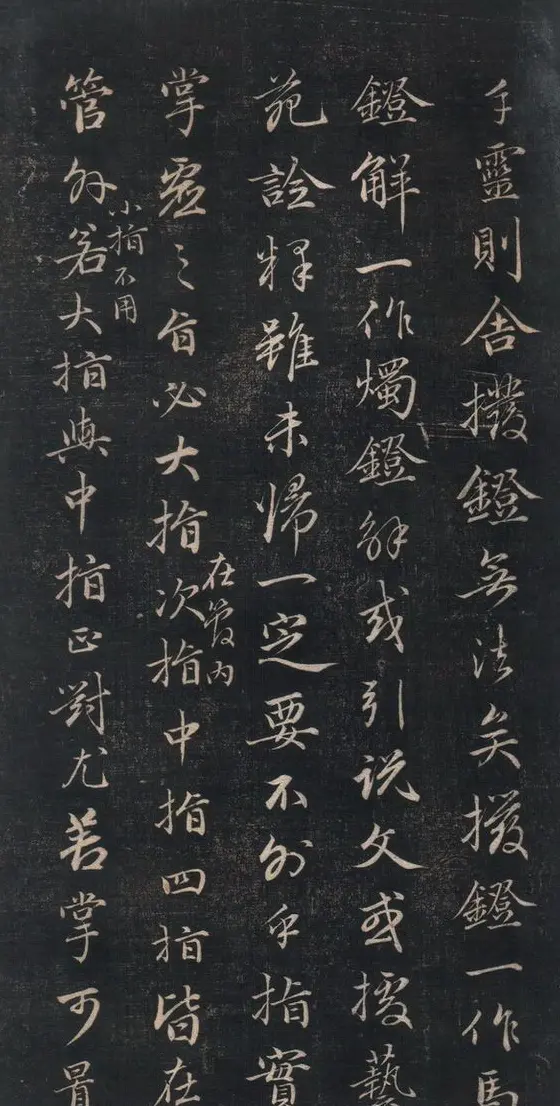 手靈則舍撥鐙無法矣撥鐙一作馬
鐙解一作燭鐙解或引説文或據藝
苑詮釋雖未歸一定要不外乎指實
掌虛之旨必大指次指中指四指皆在
在管内
管外若大指與中指正對尤若掌可
小指不用